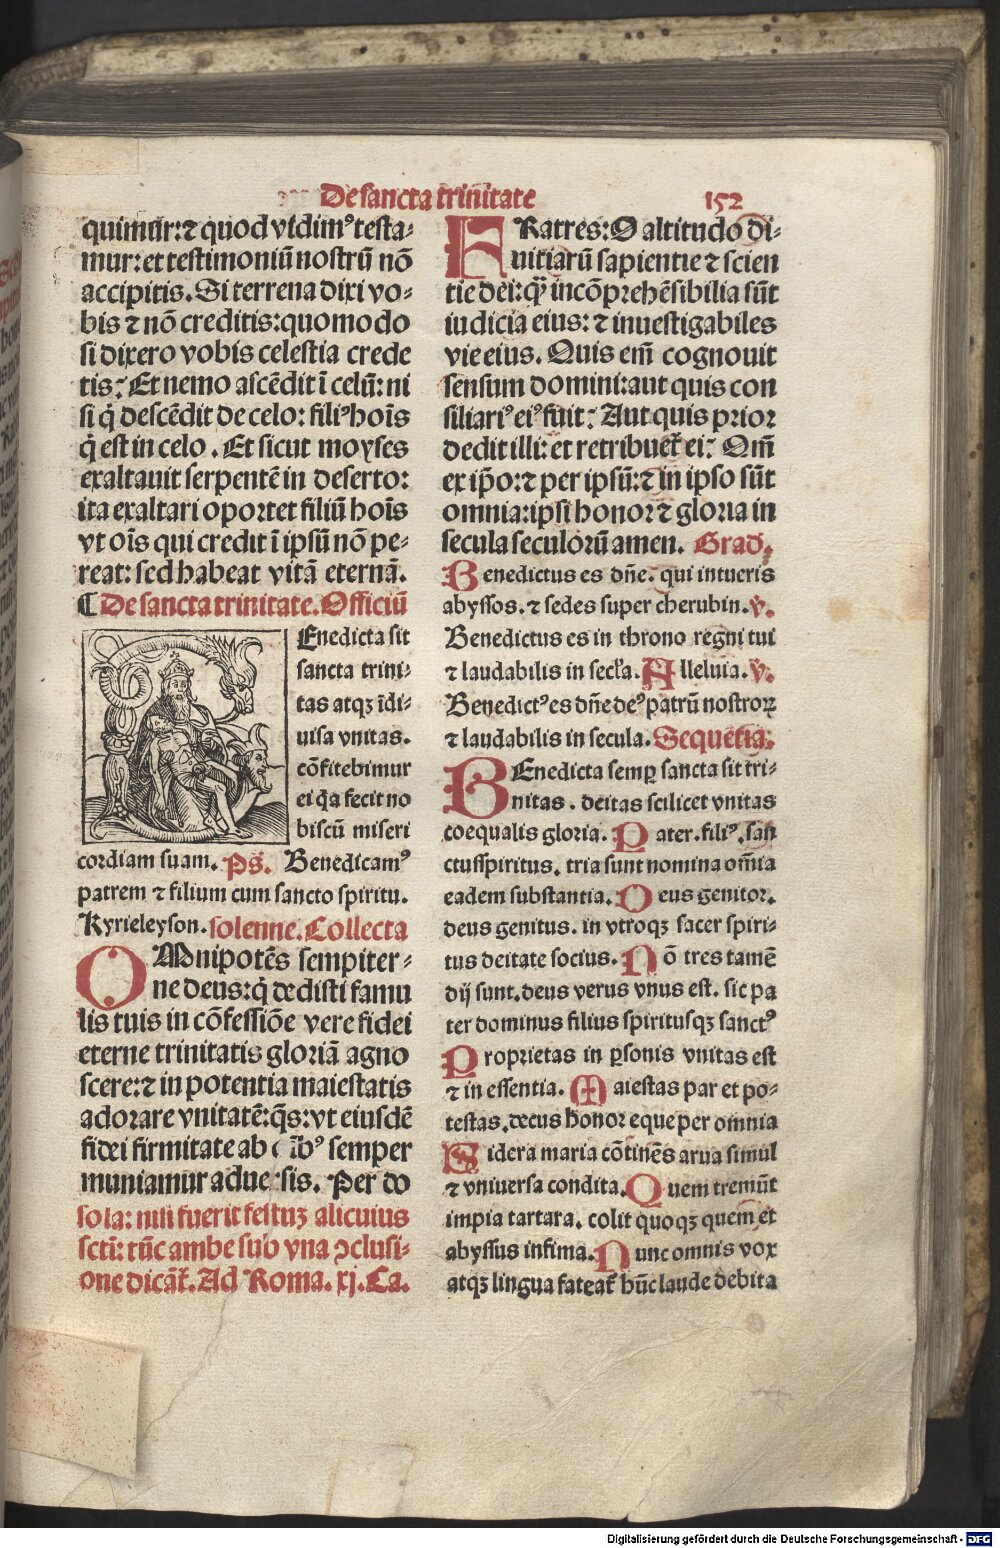 De sancta trinitate 152
quimur: ⁊ quod vidimꝰ testa-
mur: et testimoniū nostrū nō
accipitis. Si terrena dixi vo-
bis ⁊ nō creditis: quomodo
si dixero vobis celestia crede
tis? Et nemo ascēdit ī celū: ni
si q̇ descēdit de celo: filiꝰ hoīs
q̇ est in celo. Et sicut moyses
exaltauit serpentē in deserto:
ita exaltari oportet filiū hoīs
vt oīs qui credit ī ipsū nō pe-
reat: sed habeat vitā eternā.
¶ De sancta trinitate. Officiū
BEnedicta sit
sancta trini-
tas atqꝫ īdi-
uisa vnitas.
cōfitebimur
ei q̇a fecit no
biscū miseri
cordiam suam. Ps. Benedicamꝰ
patrem ⁊ filium cum sancto spiritu.
Kyrieleyson. solenne. Collecta
OMnipotēs sempiter-
ne deus: q̇ dedisti famu
lis tuis in cōfessiōe vere fidei
eterne trinitatis gloriā agno
scere: ⁊ in potentia maiestatis
adorare vnitatē: q̄s: vt eiusdē
fidei firmitate ab oībꝰ semper
muniamur aduersis. Per do
sola: nisi fuerit festuꝫ alicuius
scti: tūc ambe sub vna ꝯclusi-
one dicāt̄. Ad Roma. xj. Ca.
FRatres: O altitudo di-
uitiarū sapientie ⁊ scien
tie dei: q̄ꝫ incōprehēsibilia sūt
iudicia eius: ⁊ inuestigabiles
vie eius. Quis em̄ cognouit
sensum domini: aut quis con
siliariꝰ eiꝰ fuit? Aut quis prior
dedit illi: et retribuet̄ ei? Qm̄
ex ip̄o: ⁊ per ipsū: ⁊ in ipso sūt
omnia: ipsi honor ⁊ gloria in
secula seculorū amen. Grad.
Benedictus es dn̄e. qui intueris
abyssos. ⁊ sedes super cherubin. v̇.
Benedictus es in throno regni tui
⁊ laudabilis in secl'a. Alleluia. v̇.
Benedictꝰ es dn̄e deꝰ patrū nostroꝝ
⁊ laudabilis in secula. Sequētia.
BEnedicta semꝑ sancta sit tri-
nitas. deitas scilicet vnitas
coequalis gloria. Pater. filiꝰ. san
ctusspiritus. tria sunt nomina om̄ia
eadem substantia. Deus genitor.
deus genitus. in vtroqꝫ sacer spiri-
tus deitate socius. Nō tres tamē
dij sunt. deus verus vnus est. sic pa
ter dominus filius spiritusqꝫ sanctꝰ
Proprietas in ꝑsonis vnitas est
⁊ in essentia. Maiestas par et po-
testas. decus honor eque per omnia
Sidera maria cōtinēs arua simul
⁊ vniuersa condita. Quem tremūt
impia tartara. colit quoqꝫ quem et
abyssus infima. Nunc omnis vox
atqꝫ lingua fateat̄ hūc laude debita
Digitalisierung gefördert durch die Deutsche Forschungsgemeinschaft - DFG